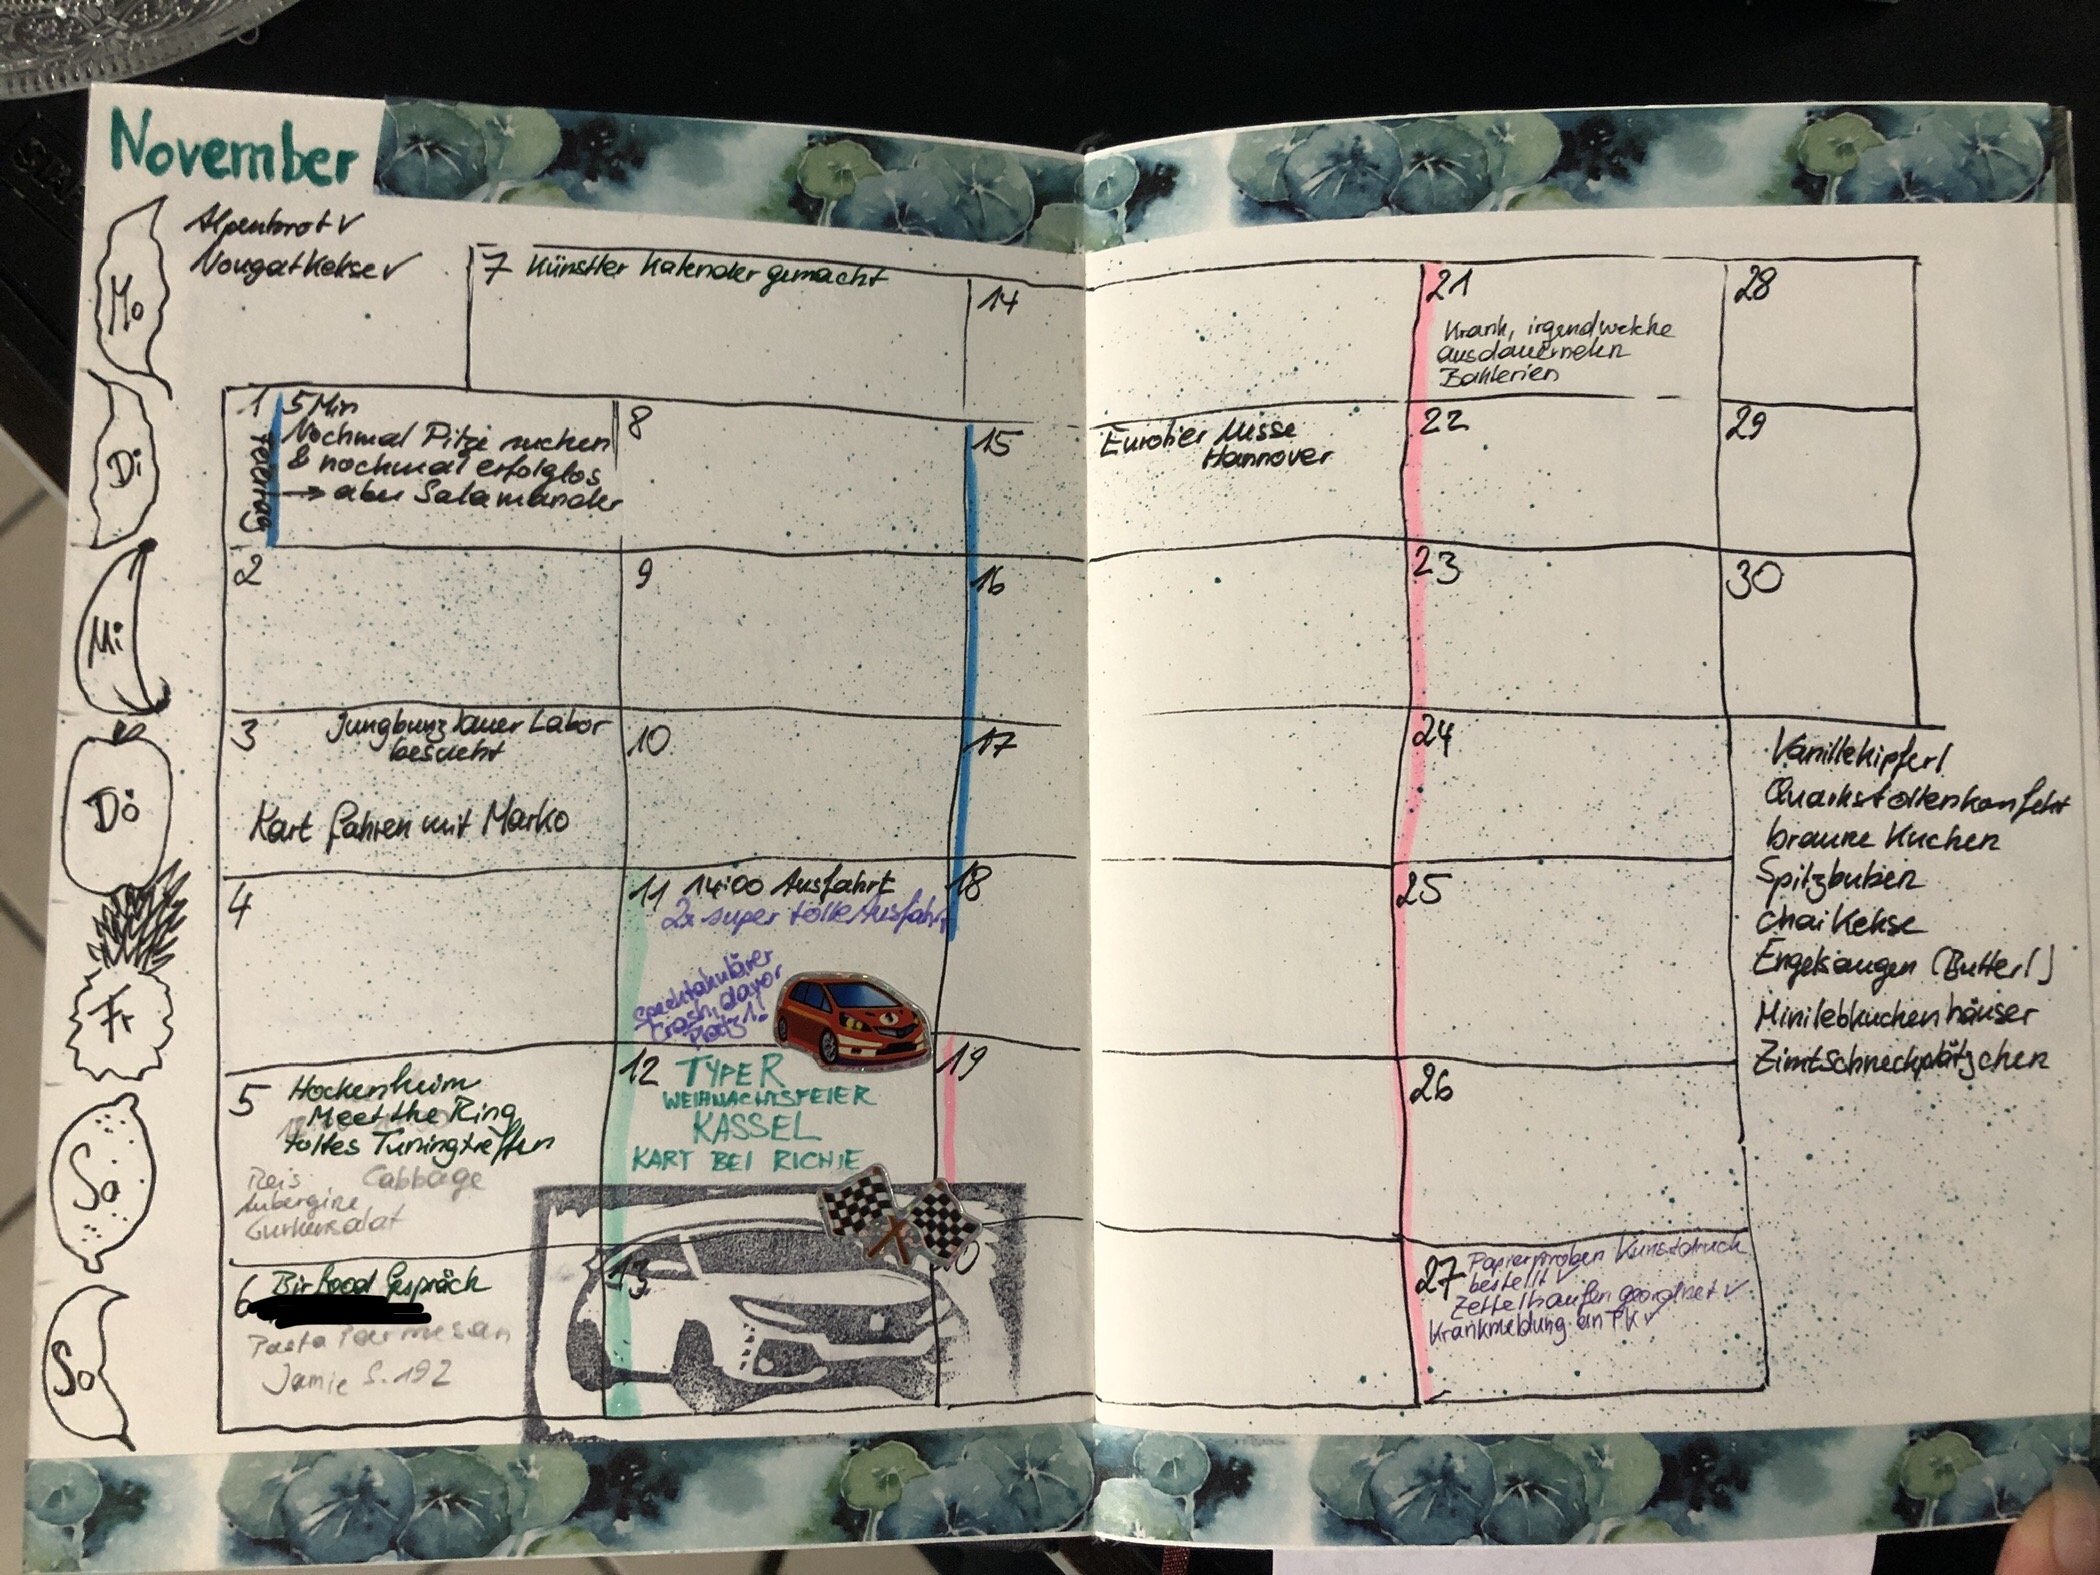 November
Alpenbrot ✓
Nougatkekse ✓
Mo
Di
Mi
Do
Fr
Sa
So
7 Künstler Kalender gemacht
14
21
Krank, irgendwelche
ausdauernden
Bakterien
28
1
Feiertag
5 Min
Nochmal Pilze suchen
& nochmal erfolglos
→ aber Salamander
8
15
Eurotier Messe
Hannover
22
29
2
9
16
23
30
3 Jungbunzlauer Labor
besucht
Kart fahren mit Marko
10
17
24
4
11 14:00 Ausfahrt
2x super tolle Ausfahrt
Spektakulärer
Crash, davor
Platz 1!
18
25
5 Hockenheim
Meet the Ring
tolles Tuningtreffen
Reis Cabbage
Aubergine
Gurkensalat
12 TYPE R
WEIHNACHTSFEIER
KASSEL
KART BEI RICHIE
19
26
6 Gespräch
Pasta Parmesan
Jamie S. 192
13
27 Papierproben Kunstdruck
bestellt ✓
Zettelhaufen geordnet ✓
Krankmeldung an TK ✓
Vanillekipferl
Quarkstollenkonfekt
braune Kuchen
Spitzbuben
Chai Kekse
Engelsaugen (Butter!)
Minilebkuchenhäuser
Zimtschneckplätzchen